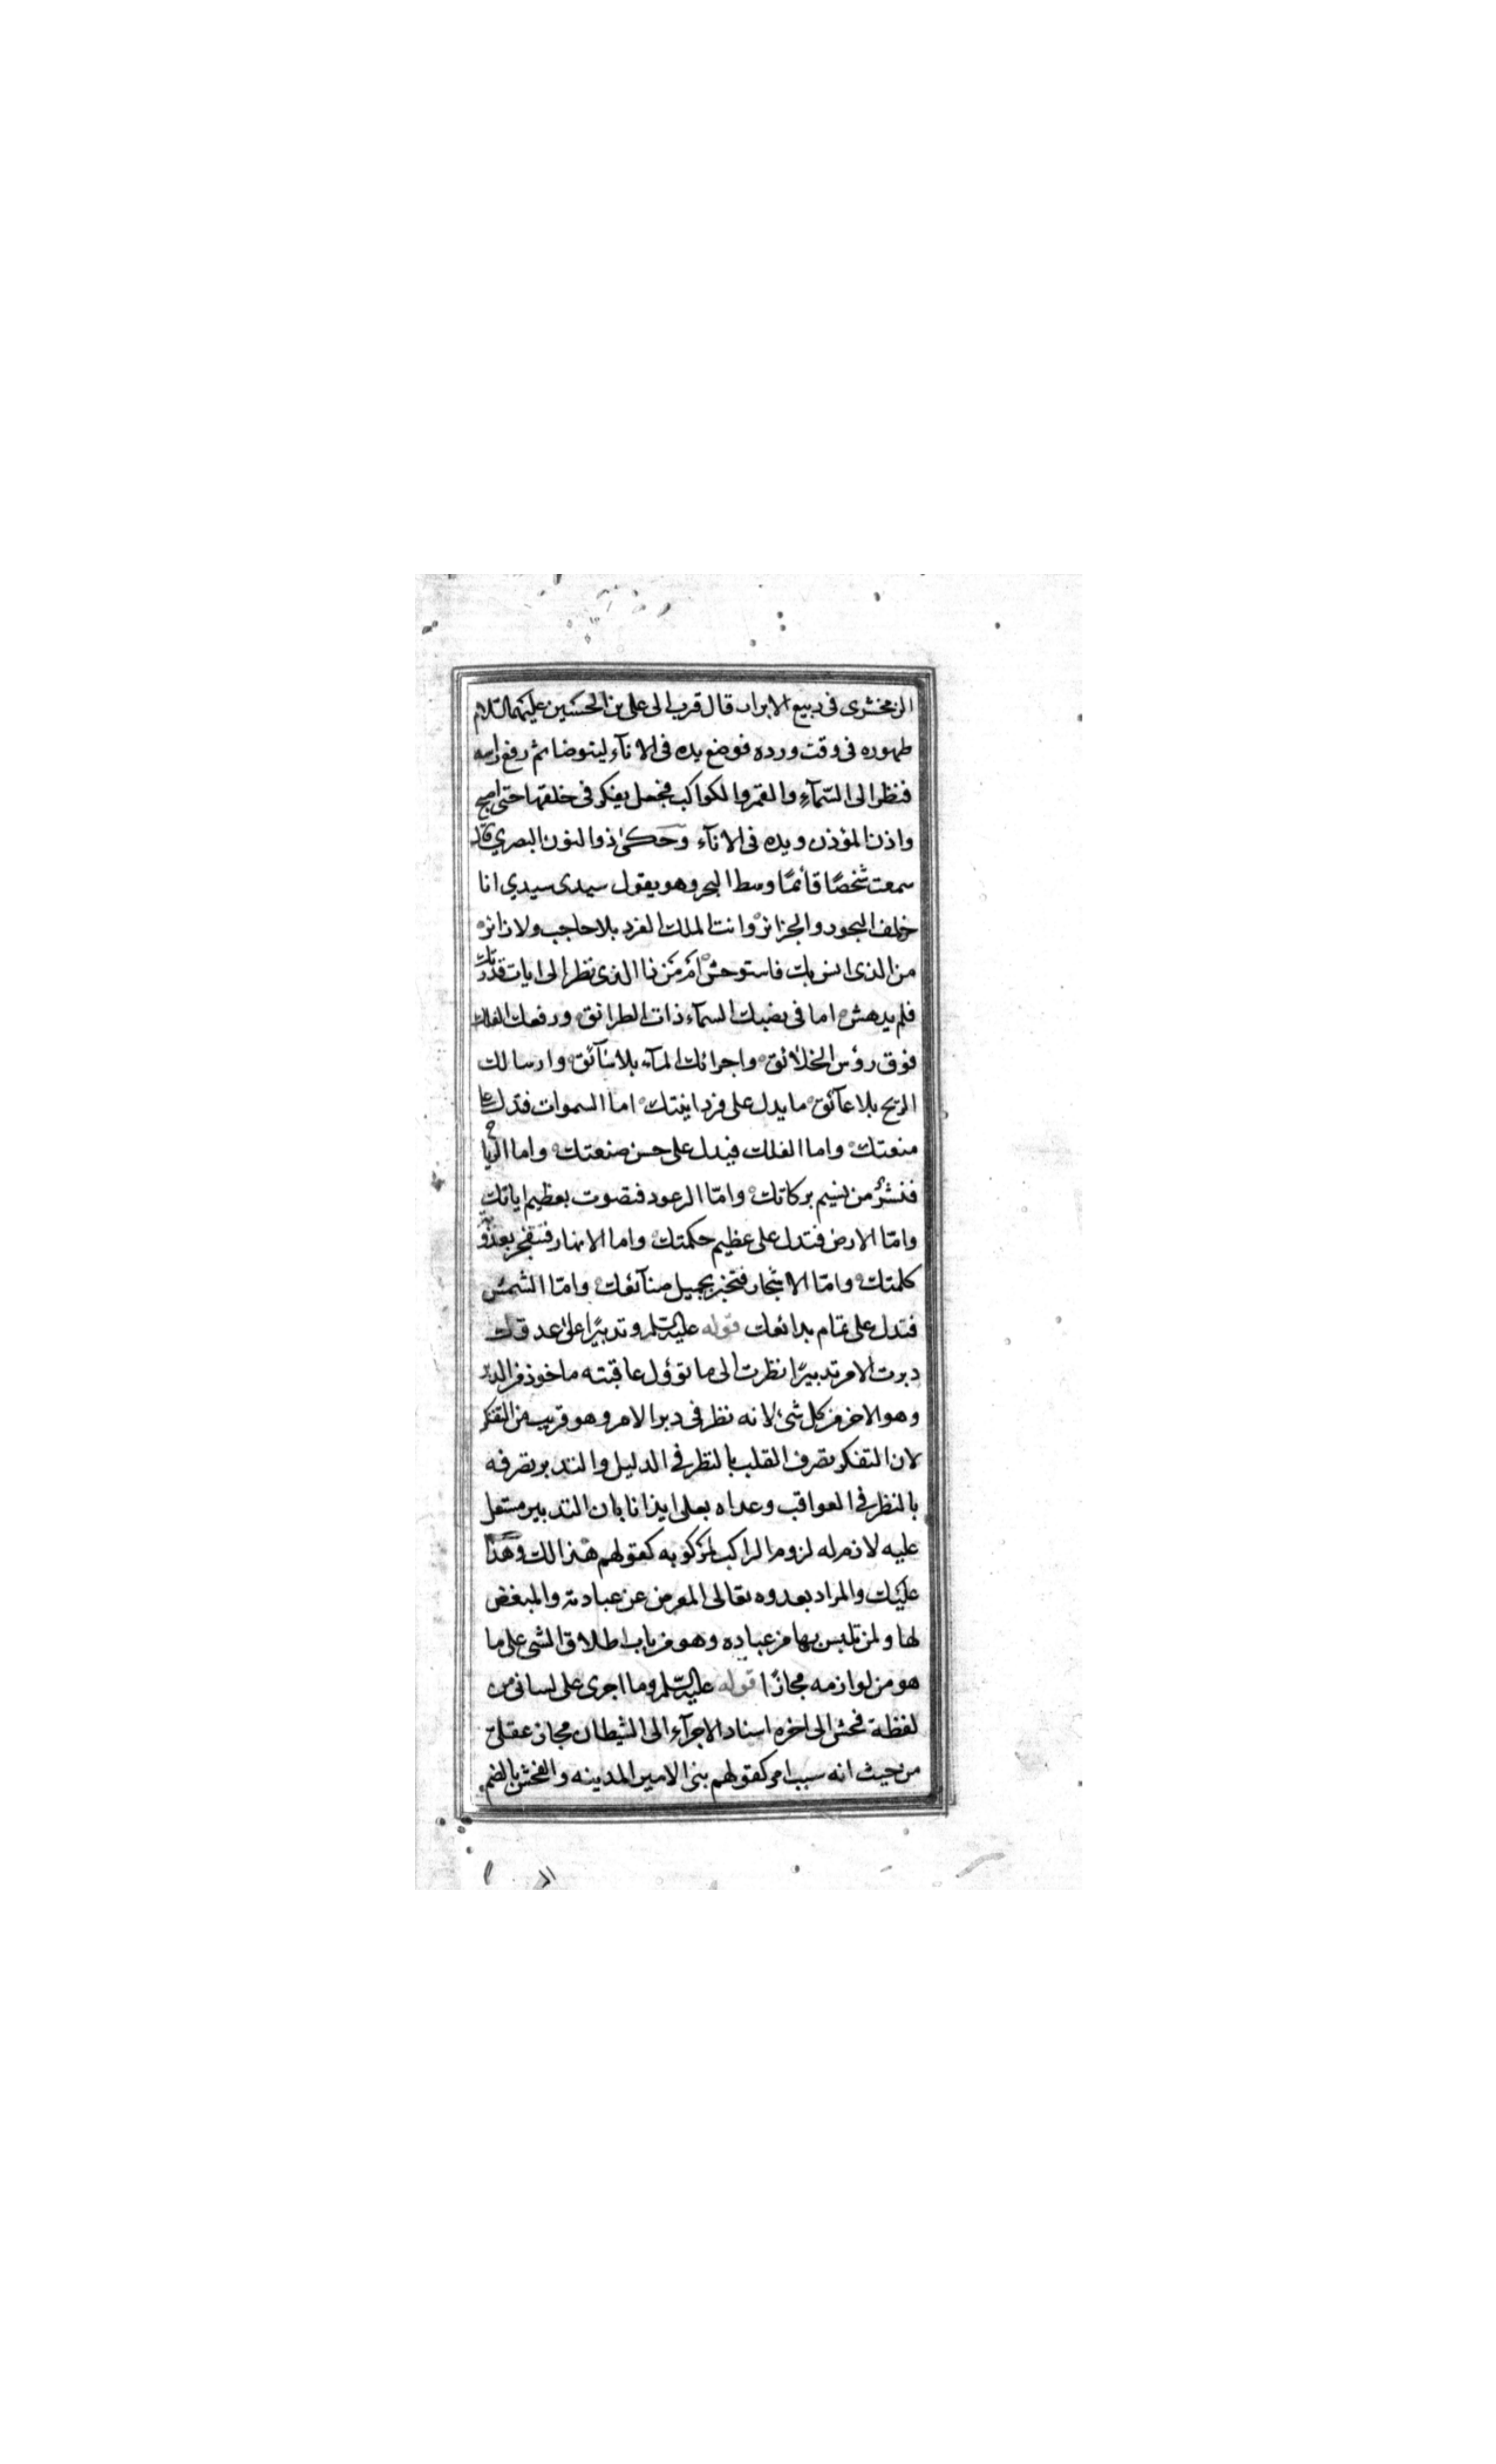 الزمخشرى فى ربيع الابرار قال قرب الى على بن الحسين عليهما السلام
طهوره فى وقت ورده فوضع يده فى الاناء ليتوضا ثم رفع راسه
فنظر الى السّمآء والقمر والكواكب فجعل يفكر فى خلقتها حتى اصبح
واذن المؤذن ويده فى الانآء وحكى ذوالنون البصري قال
سمعت شخصًا قائمًا وسط البحر وهو يقول سيدى سيدي انا
خلف البحور والجزائر وانت الملك الفرد بلا حاجب ولا زائر
من الذى انس بك فاستوحش ام من ذا الذى نظر الى ايات قدرتك
فلم يدهش اما فى نصبك السمآء ذات الطرائق ورفعك الفلك
فوق رؤس الخلائق واجرائك المآء بلا سآئق وارسالك
الريح بلا عآئق ما يدل على فردانيتك اما السموات فتدل على
منعتك واما الفلك فيدل على حسن صنعتك واما الرياح
فتنشر من نسيم بركاتك وامّا الرعود فتصوت بعظيم اياتك
وامّا الارض فتدل على عظيم حكمتك واما الانهار فتنفجر بعذوبة
كلمتك وامّا الاشجار فتخبر بجميل صنآئعك وامّا الشمس
فتدل على تمام بدائعك قوله عليه السّلم وتدبيرًا على عدوك
دبرت الامر تدبيرًا نظرت الى ما تؤول عاقبته ماخوذ من الدبر
وهو الاخر من كل شئ لانه نظر فى دبر الامر وهو قريب من التفكر
لان التفكر تصرف القلب بالنظر فى الدليل والتدبر تصرفه
بالنظر فى العواقب وعداه بعلى ايذانا بان التدبير مستعل
عليه لازم له لزوم الراكب لمركوبه كقولهم هذا لك وهذا
عليك والمراد بعدوه تعالى المعرض عن عبادته والمبغض
لها ولمن تلبس بها من عباده وهو من باب اطلاق الشى على ما
هو من لوازمه مجازًا قوله عليه السّلم وما اجرى على لسانى من
لفظة فحش الى اخره اسناد الاجرآء الى الشيطان مجاز عقلى
من حيث انه سبب امر كقولهم بنى الامير المدينه والفحش بالضم